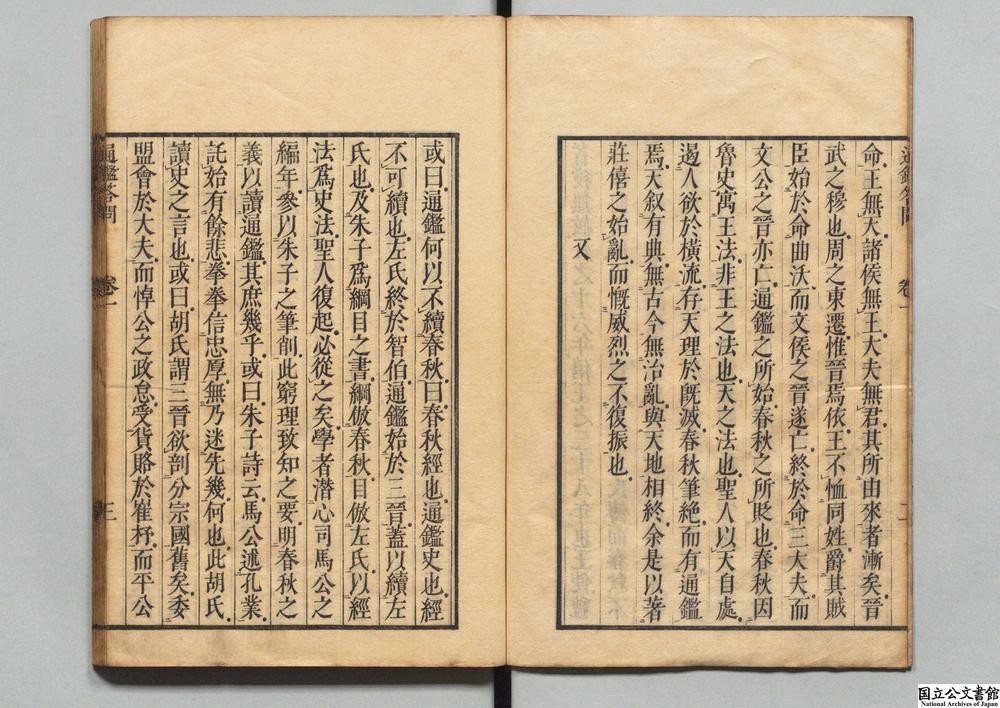 通鑑答問 卷一 二
命王無天諸侯無王大夫無君其所由來者漸矣晉
武之穆也周之東遷惟晉焉依王不恤同姓爵其賊
臣始於命曲沃而文侯之晉遂亡終於命三大夫而
文公之晉亦亡通鑑之所始春秋之所貶也春秋因
魯史寓王法非王之法也天之法也聖人以天自處
遏人欲於橫流存天理於旣滅春秋筆絶而有通鑑
焉天叙有典無古今無治亂與天地相終余是以著
莊僖之始亂而慨威烈之不復振也
又
或曰通鑑何以不續春秋曰春秋經也通鑑史也經
不可續也左氏終於智伯通鑑始於三晉蓋以續左
氏也及朱子爲綱目之書綱倣春秋目倣左氏以經
法爲史法聖人復起必從之矣學者潜心司馬公之
編年參以朱子之筆削此窮理致知之要明春秋之
義以讀通鑑其庶幾乎或曰朱子詩云馬公述孔業
託始有餘悲拳拳信忠厚無乃迷先幾何也此胡氏
讀史之言也或曰胡氏謂三晉欲剖分宗國舊矣委
盟會於大夫而悼公之政怠受貨賂於崔杼而平公
通鑑答問 卷一 三
国立公文書館
National Archives of Japan